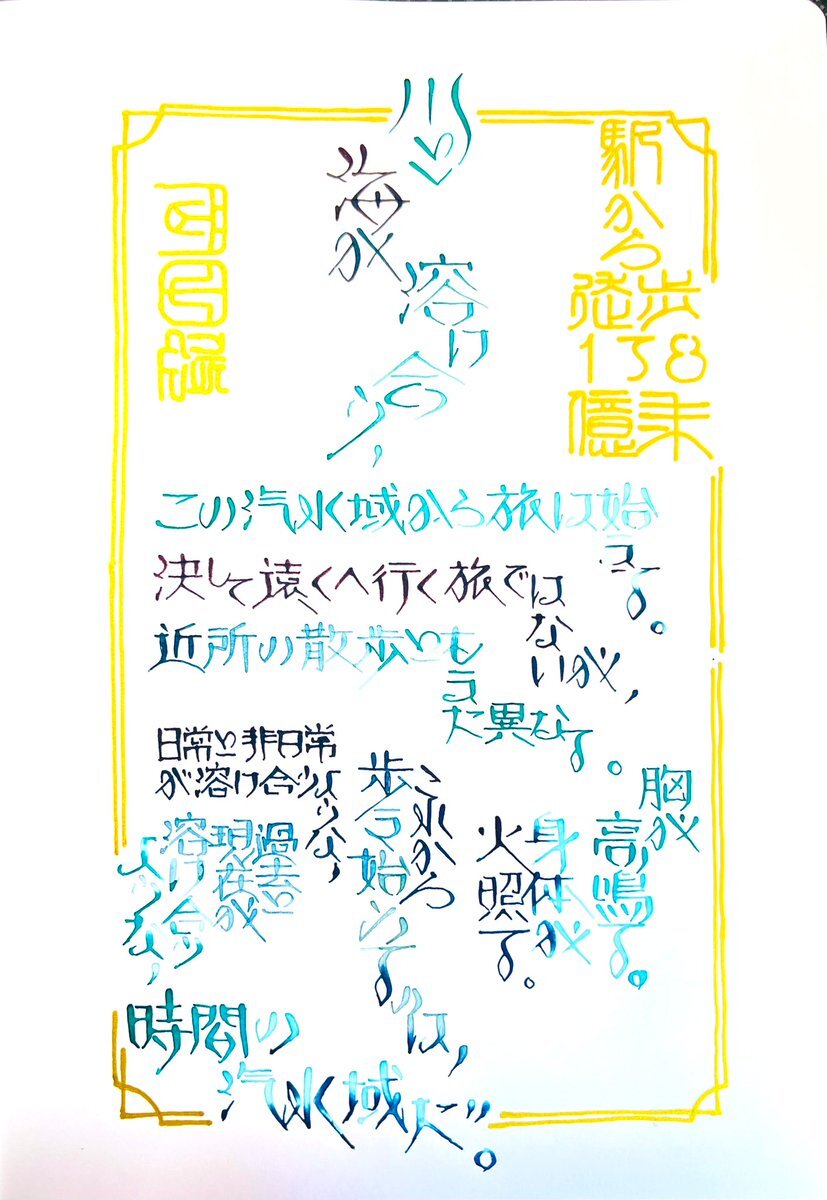 駅から
徒歩
138
億年
川と
海が
溶け
合う、
この汽水域から旅は始
まる。
決して遠くへ行く旅では
ないが、
近所の散歩とも
また異なる。
胸が
高鳴る。
身体が
火照る。
これから
歩き始めるのは、
日常と非日常
が溶け合うような、
過去と
現在が
溶け合う
ような、
時間の
汽水域だ。